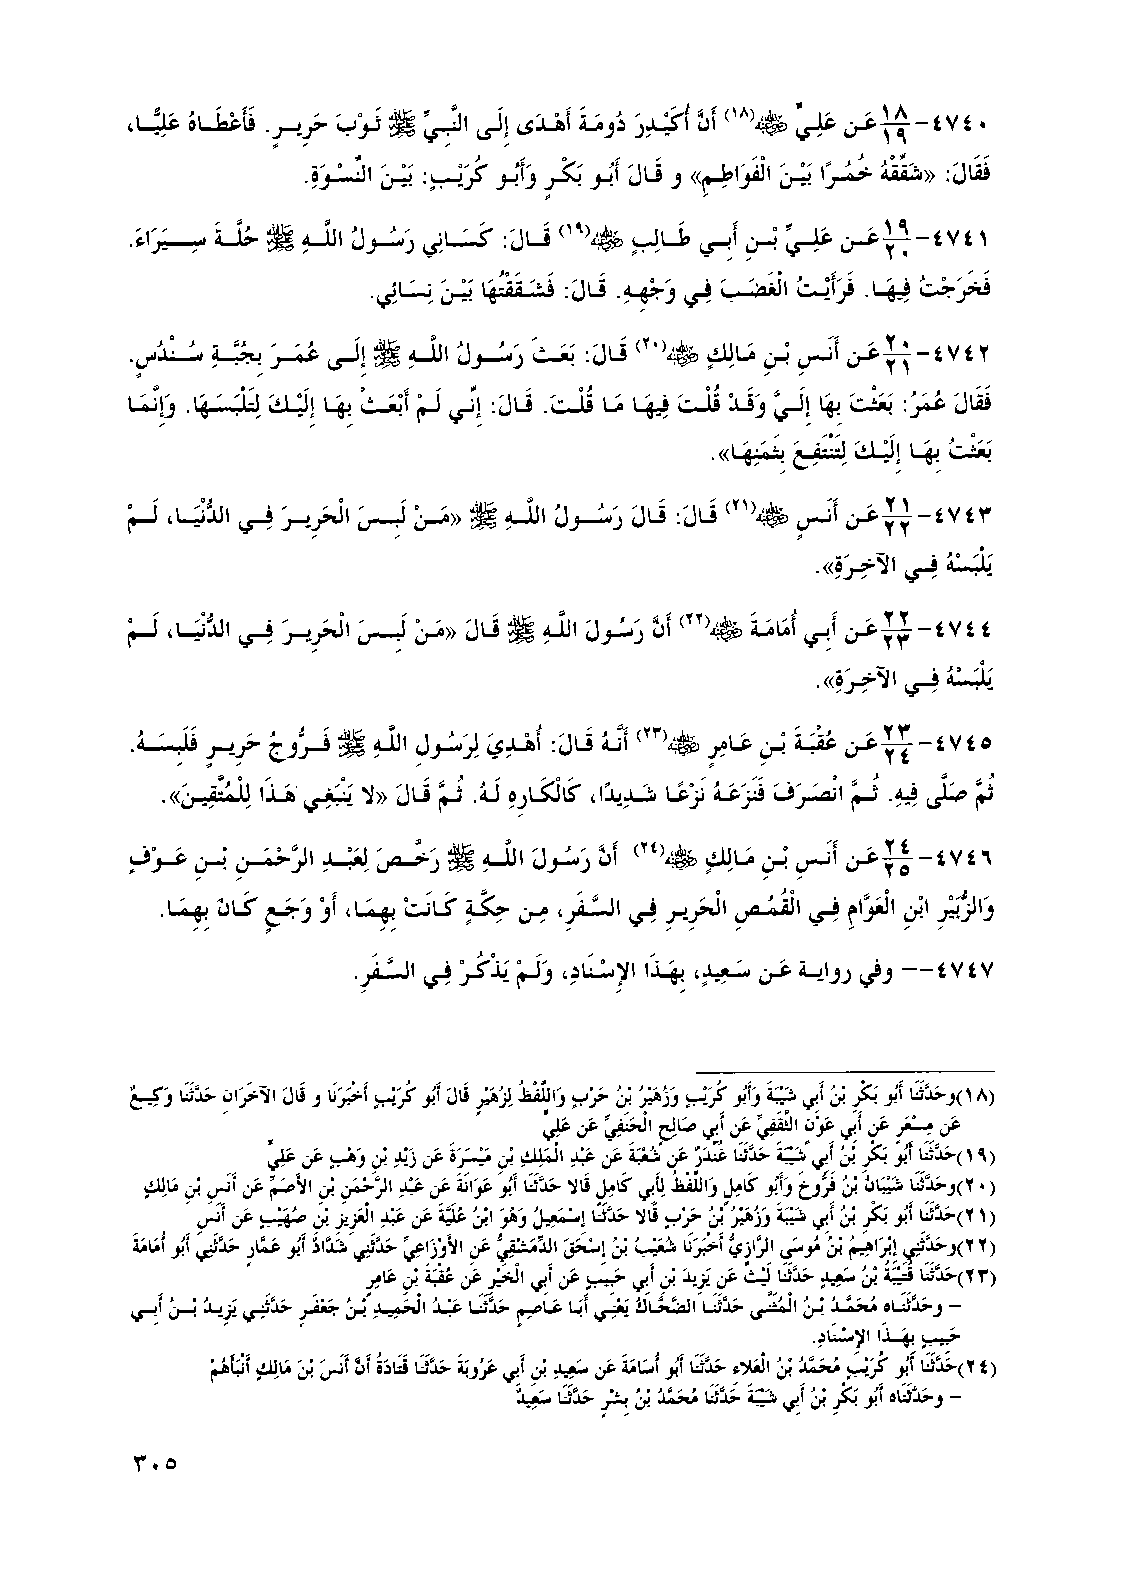 ٤٧٤٠- ١٨/١٩ عَن عَلِيٍّ ﷺ(١٨) أَنَّ أُكَيْدِرَ دُومَةَ أَهْدَى إِلَى النَّبِيِّ ﷺ ثَوْبَ حَرِيرٍ. فَأَعْطَاهُ عَلِيًّا،
فَقَالَ: «شَقِّقْهُ خُمُرًا بَيْنَ الْفَوَاطِمِ» و قَالَ أَبُو بَكْرٍ وَأَبُو كُرَيْبٍ: بَيْنَ النِّسْوَةِ.
٤٧٤١- ١٩/٢٠ عَن عَلِيِّ بْنِ أَبِي طَالِبٍ ﷺ(١٩) قَالَ: كَسَانِي رَسُولُ اللَّهِ ﷺ حُلَّةَ سِيَرَاءَ.
فَخَرَجْتُ فِيهَا. فَرَأَيْتُ الْغَضَبَ فِي وَجْهِهِ. قَالَ: فَشَقَقْتُهَا بَيْنَ نِسَائِي.
٤٧٤٢- ٢٠/٢١ عَن أَنَسِ بْنِ مَالِكٍ ﷺ(٢٠) قَالَ: بَعَثَ رَسُولُ اللَّهِ ﷺ إِلَى عُمَرَ بِجُبَّةِ سُنْدُسٍ.
فَقَالَ عُمَرُ: بَعَثْتَ بِهَا إِلَيَّ وَقَدْ قُلْتَ فِيهَا مَا قُلْتَ. قَالَ: إِنِّي لَمْ أَبْعَثْ بِهَا إِلَيْكَ لِتَلْبَسَهَا. وَإِنَّمَا
بَعَثْتُ بِهَا إِلَيْكَ لِتَنْتَفِعَ بِثَمَنِهَا».
٤٧٤٣- ٢١/٢٢ عَن أَنَسٍ ﷺ(٢١) قَالَ: قَالَ رَسُولُ اللَّهِ ﷺ «مَنْ لَبِسَ الْحَرِيرَ فِي الدُّنْيَا، لَمْ
يَلْبَسْهُ فِي الآخِرَةِ».
٤٧٤٤- ٢٢/٢٣ عَن أَبِي أُمَامَةَ ﷺ(٢٢) أَنَّ رَسُولَ اللَّهِ ﷺ قَالَ «مَنْ لَبِسَ الْحَرِيرَ فِي الدُّنْيَا، لَمْ
يَلْبَسْهُ فِي الآخِرَةِ».
٤٧٤٥- ٢٣/٢٤ عَن عُقْبَةَ بْنِ عَامِرٍ ﷺ(٢٣) أَنَّهُ قَالَ: أُهْدِيَ لِرَسُولِ اللَّهِ ﷺ فَرُّوجُ حَرِيرٍ فَلَبِسَهُ.
ثُمَّ صَلَّى فِيهِ. ثُمَّ انْصَرَفَ فَنَزَعَهُ نَزْعًا شَدِيدًا، كَالْكَارِهِ لَهُ. ثُمَّ قَالَ «لا يَنْبَغِي هَذَا لِلْمُتَّقِينَ».
٤٧٤٦- ٢٤/٢٥ عَن أَنَسِ بْنِ مَالِكٍ ﷺ(٢٤) أَنَّ رَسُولَ اللَّهِ ﷺ رَخَّصَ لِعَبْدِ الرَّحْمَنِ بْنِ عَوْفٍ
وَالزُّبَيْرِ ابْنِ الْعَوَّامِ فِي الْقُمُصِ الْحَرِيرِ فِي السَّفَرِ، مِن حِكَّةٍ كَانَتْ بِهِمَا، أَوْ وَجَعٍ كَانَ بِهِمَا.
٤٧٤٧-- وفي رواية عَن سَعِيدٍ، بِهَذَا الإِسْنَادِ، وَلَمْ يَذْكُرْ فِي السَّفَرِ.
(١٨)وحَدَّثَنَا أَبُو بَكْرِ بْنُ أَبِي شَيْبَةَ وَأَبُو كُرَيْبٍ وَزُهَيْرُ بْنُ حَرْبٍ وَاللَّفْظُ لِزُهَيْرٍ قَالَ أَبُو كُرَيْبٍ أَخْبَرَنَا و قَالَ الآخَرَانِ حَدَّثَنَا وَكِيعٌ
عَن مِسْعَرٍ عَن أَبِي عَوْنٍ الثَّقَفِيِّ عَن أَبِي صَالِحٍ الْحَنَفِيِّ عَن عَلِيٍّ
(١٩)حَدَّثَنَا أَبُو بَكْرِ بْنُ أَبِي شَيْبَةَ حَدَّثَنَا غُنْدَرٌ عَن شُعْبَةَ عَن عَبْدِ الْمَلِكِ بْنِ مَيْسَرَةَ عَن زَيْدِ بْنِ وَهْبٍ عَن عَلِيٍّ
(٢٠)وحَدَّثَنَا شَيْبَانُ بْنُ فَرُّوخَ وَأَبُو كَامِلٍ وَاللَّفْظُ لِأَبِي كَامِلٍ قَالا حَدَّثَنَا أَبُو عَوَانَةَ عَن عَبْدِ الرَّحْمَنِ بْنِ الأَصَمِّ عَن أَنَسِ بْنِ مَالِكٍ
(٢١)حَدَّثَنَا أَبُو بَكْرِ بْنُ أَبِي شَيْبَةَ وَزُهَيْرُ بْنُ حَرْبٍ قَالا حَدَّثَنَا إِسْمَعِيلُ وَهُوَ ابْنُ عُلَيَّةَ عَن عَبْدِ الْعَزِيزِ بْنِ صُهَيْبٍ عَن أَنَسٍ
(٢٢)وحَدَّثَنِي إِبْرَاهِيمُ بْنُ مُوسَى الرَّازِيُّ أَخْبَرَنَا شُعَيْبُ بْنُ إِسْحَقَ الدِّمَشْقِيُّ عَن الأَوْزَاعِيِّ حَدَّثَنِي شَدَّادٌ أَبُو عَمَّارٍ حَدَّثَنِي أَبُو أُمَامَةَ
(٢٣)حَدَّثَنَا قُتَيْبَةُ بْنُ سَعِيدٍ حَدَّثَنَا لَيْثٌ عَن يَزِيدَ بْنِ أَبِي حَبِيبٍ عَن أَبِي الْخَيْرِ عَن عُقْبَةَ بْنِ عَامِرٍ
– وحَدَّثَنَاه مُحَمَّدُ بْنُ الْمُثَنَّى حَدَّثَنَا الضَّحَّاكُ يَعْنِي أَبَا عَاصِمٍ حَدَّثَنَا عَبْدُ الْحَمِيدِ بْنُ جَعْفَرٍ حَدَّثَنِي يَزِيدُ بْنُ أَبِي
حَبِيبٍ بِهَذَا الإِسْنَادِ.
(٢٤)حَدَّثَنَا أَبُو كُرَيْبٍ مُحَمَّدُ بْنُ الْعَلاءِ حَدَّثَنَا أَبُو أُسَامَةَ عَن سَعِيدِ بْنِ أَبِي عَرُوبَةَ حَدَّثَنَا قَتَادَةُ أَنَّ أَنَسَ بْنَ مَالِكٍ أَنْبَأَهُمْ
– وحَدَّثَنَاه أَبُو بَكْرِ بْنُ أَبِي شَيْبَةَ حَدَّثَنَا مُحَمَّدُ بْنُ بِشْرٍ حَدَّثَنَا سَعِيدٌ
٣٠٥